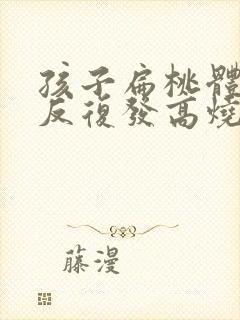 孩子扁桃體
反復發高燒
藤漫